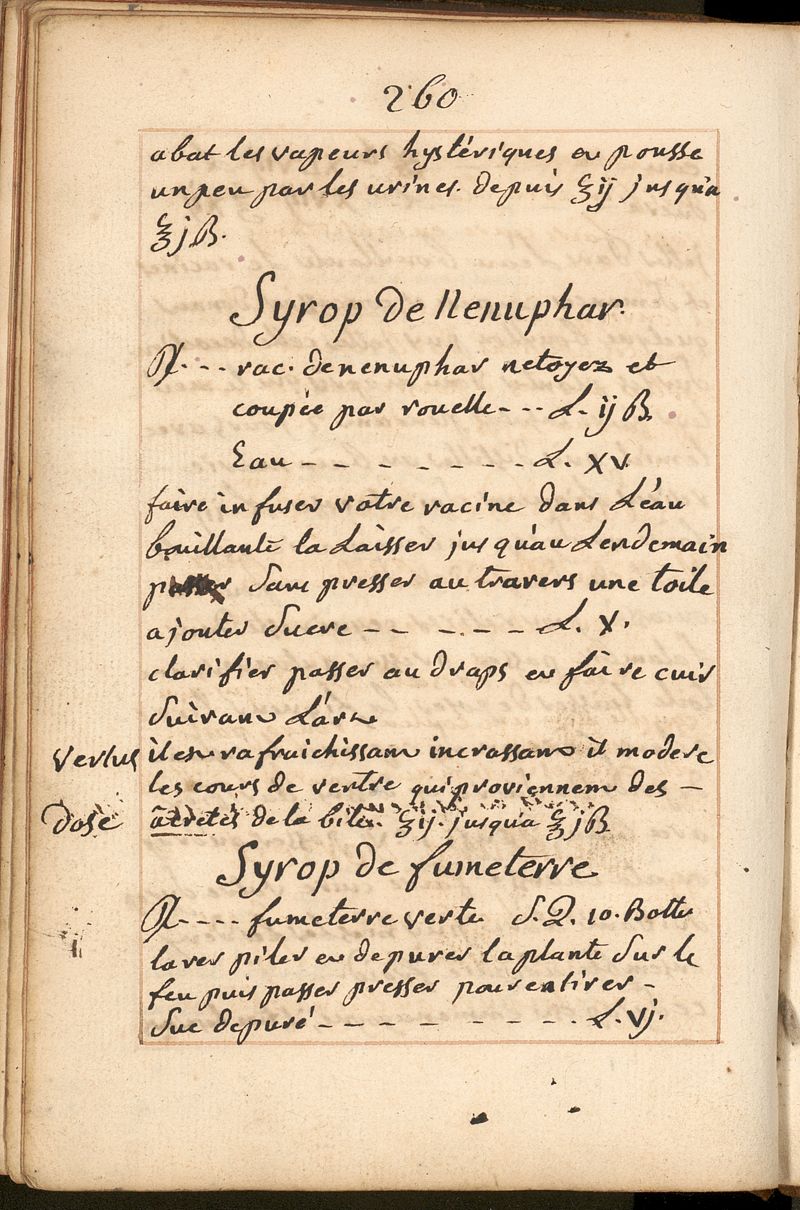 260
abat les vapeurs hystériques en pousse
un peu par les urines. depuis ℥ij jusqu'a
℥jß.
Syrop de Nenuphar.
℞ - - - rac. de nenuphar netoyez et
coupée par rouelle - - - L. ij ß.
Eau - - - - - - - L. XV.
faire infuser votre racine dans L'eau
bouillante la Laisser jusqu'au Lendemain
sans presser au travers une toile
ajouter sucre - - - - - L. X.
clarifier passer au draps en faire cuir
suivant L'art
vertus il est rafraichissant incrassant il modere
les cours de ventre qui proviennent des -
dose acretés de la bile. ℥ij. jusqu'a ℥jß
Syrop de fumeterre
℞ - - - - fumeterre verte S. Q. 10. Botte
laver piler en depurer la plante sur le
feu puis passer presser pour en tirer -
suc depuré - - - - - - - - L. vj.